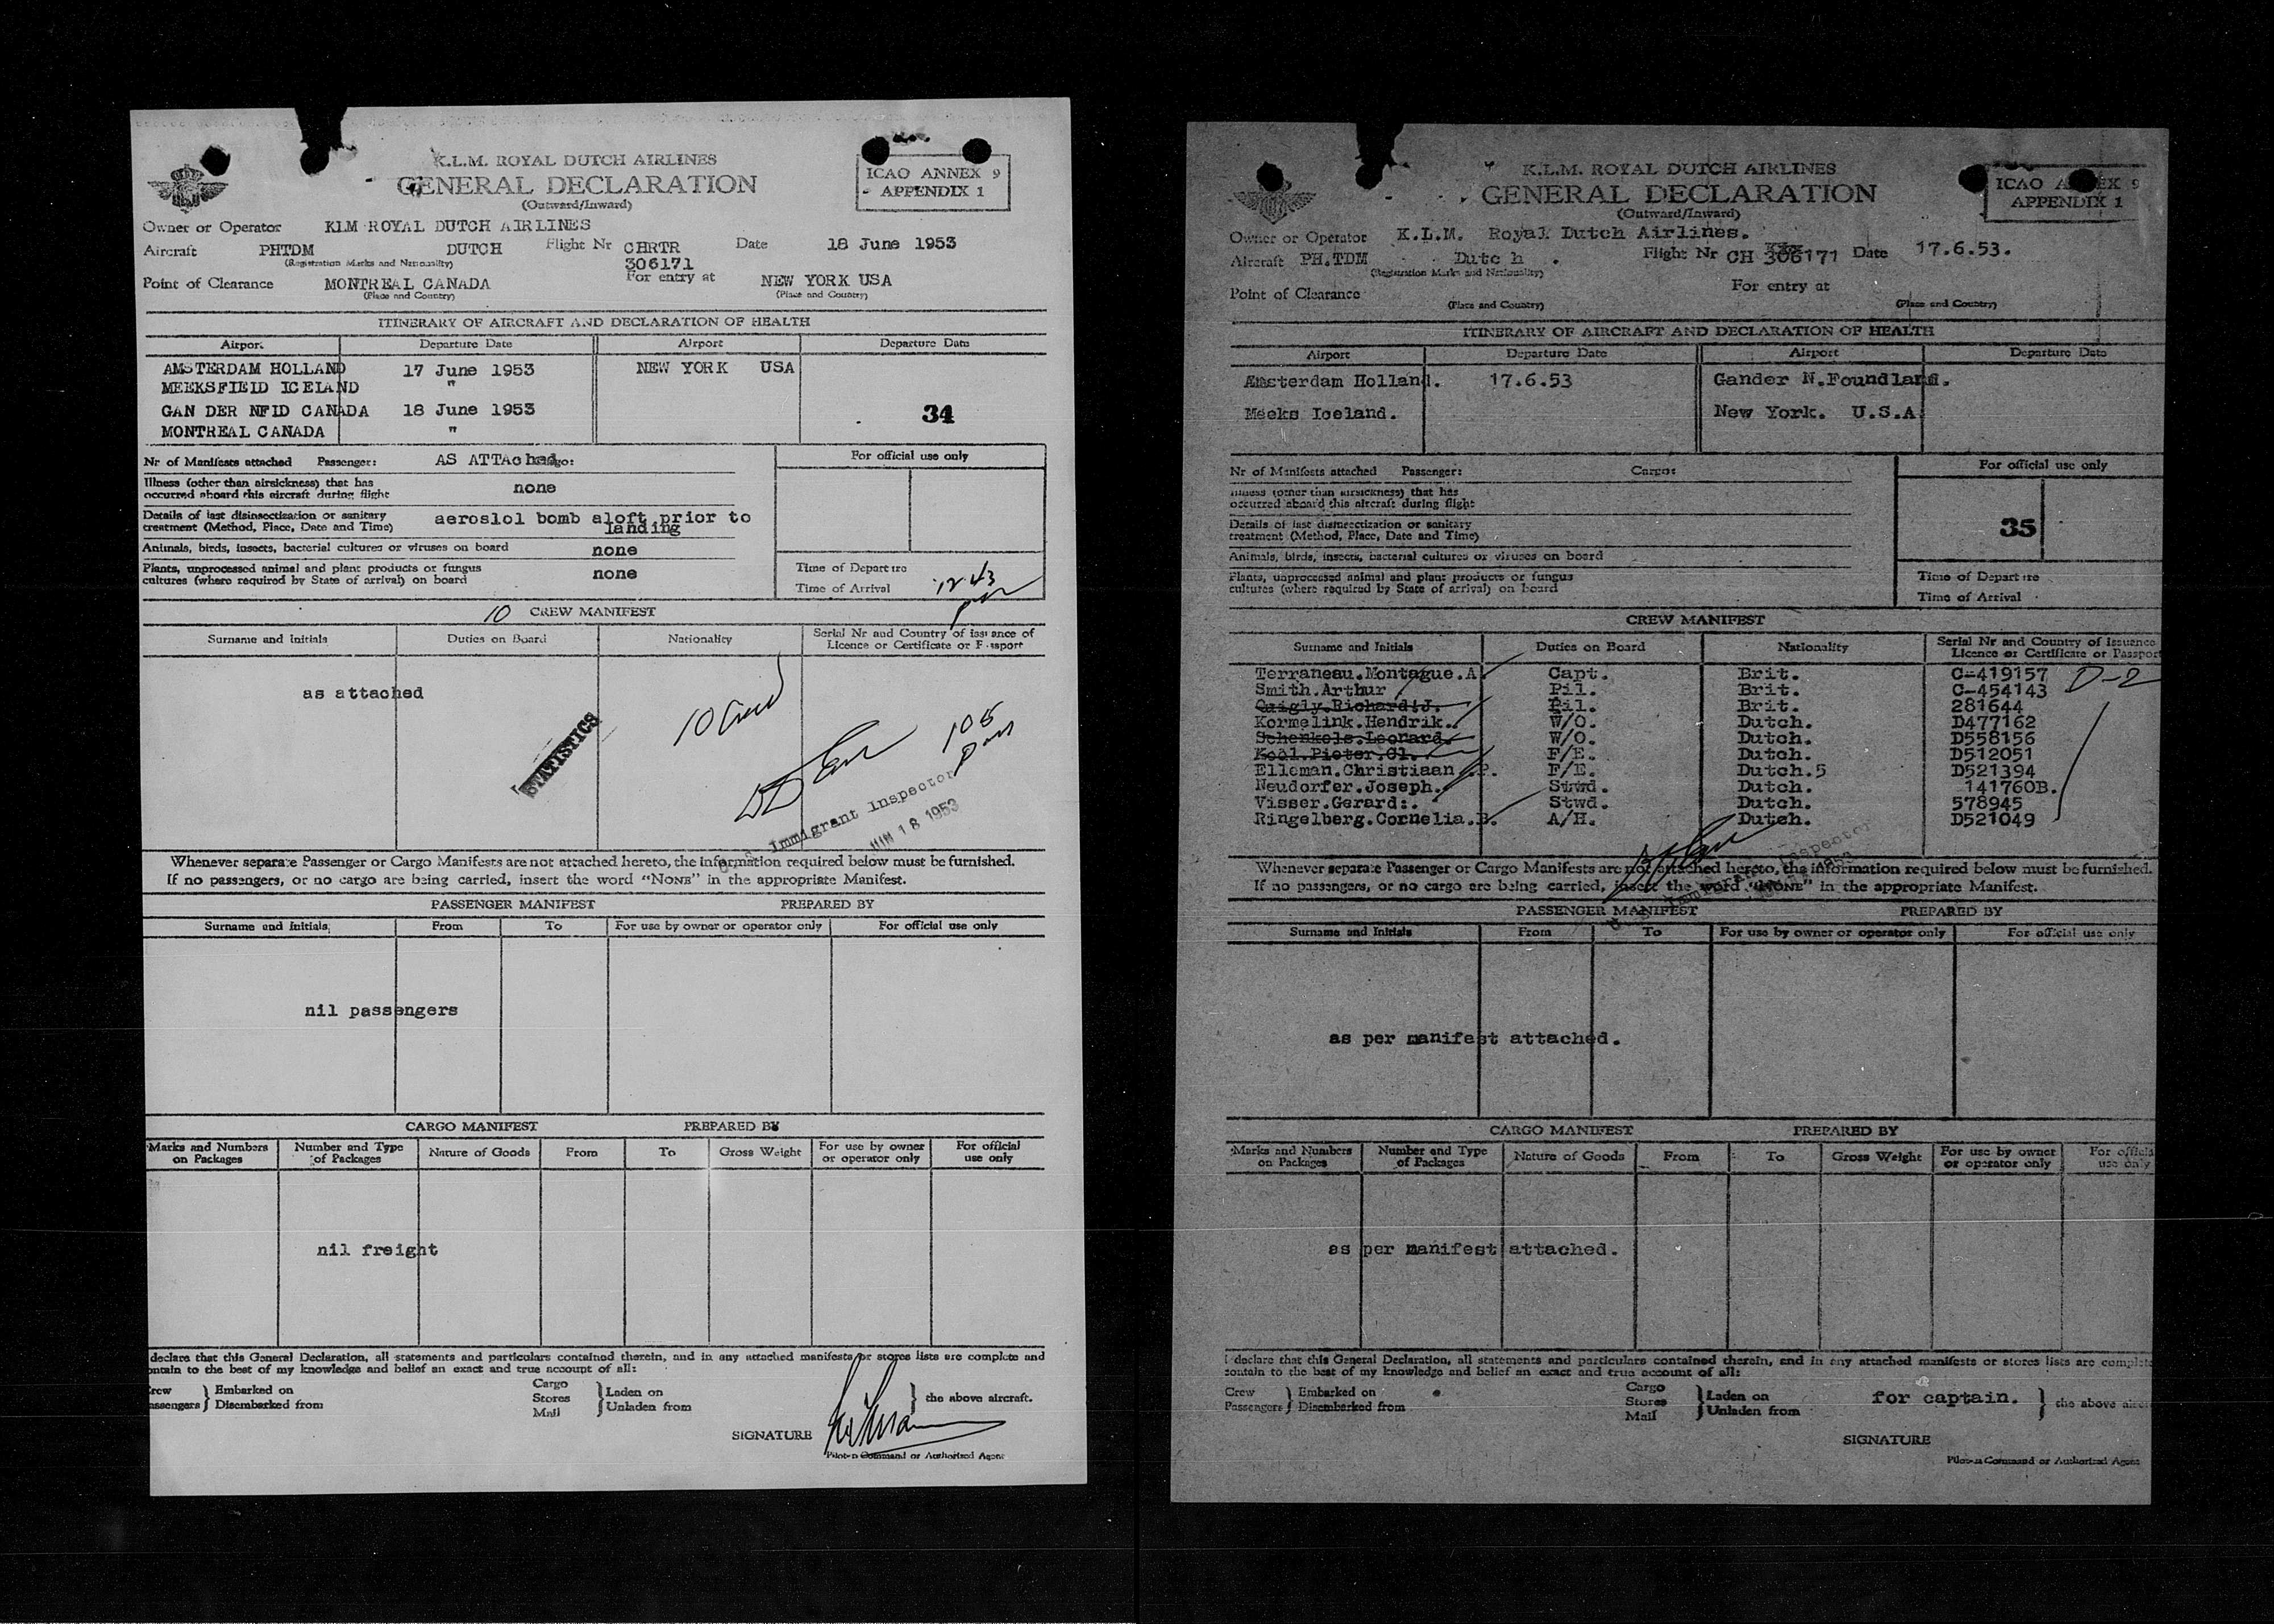 K.L.M. ROYAL DUTCH AIRLINES
GENERAL DECLARATION
(Outward/Inward)
ICAO ANNEX 9
APPENDIX 1
Owner or Operator KLM ROYAL DUTCH AIRLINES
Aircraft PHTDM DUTCH Flight Nr CHRTR 306171 Date 18 June 1953
(Registration Marks and Nationality)
Point of Clearance MONTREAL CANADA For entry at NEW YORK USA
(Place and Country) (Place and Country)
ITINERARY OF AIRCRAFT AND DECLARATION OF HEALTH
Airport Departure Date Airport Departure Date
AMSTERDAM HOLLAND 17 June 1953 NEW YORK USA
MEEKSFIEID ICELAND "
GAN DER NFID CANADA 18 June 1953 34
MONTREAL CANADA "
Nr of Manifests attached Passenger: AS ATTAched Cargo:
For official use only
Illness (other than airsickness) that has
occurred aboard this aircraft during flight none
Details of last disinsectization or sanitary
treatment (Method, Place, Date and Time) aeroslol bomb aloft prior to
landing
Animals, birds, insects, bacterial cultures or viruses on board none
Plants, unprocessed animal and plant products or fungus
cultures (where required by State of arrival) on board none
Time of Departure
Time of Arrival 12 43 pm
10 CREW MANIFEST
Surname and Initials Duties on Board Nationality Serial Nr and Country of issuance of
Licence or Certificate or Passport
as attached
STATISTICS
10 Crew
105
pass
Immigrant Inspector
JUN 18 1953
Whenever separate Passenger or Cargo Manifests are not attached hereto, the information required below must be furnished.
If no passengers, or no cargo are being carried, insert the word "NONE" in the appropriate Manifest.
PASSENGER MANIFEST PREPARED BY
Surname and Initials From To For use by owner or operator only For official use only
nil passengers
CARGO MANIFEST PREPARED BY
Marks and Numbers on Packages Number and Type of Packages Nature of Goods From To Gross Weight For use by owner or operator only For official use only
nil freight
declare that this General Declaration, all statements and particulars contained therein, and in any attached manifests or stores lists are complete and
contain to the best of my knowledge and belief an exact and true account of all:
Crew Passengers } Embarked on Disembarked from Cargo Stores Mail } Laden on Unladen from } the above aircraft.
SIGNATURE
Pilot-n Command or Authorized Agent
K.L.M. ROYAL DUTCH AIRLINES
GENERAL DECLARATION
(Outward/Inward)
ICAO ANNEX 9
APPENDIX 1
Owner or Operator K.L.M. Royal Dutch Airlines.
Aircraft PH.TDM Dutc h . Flight Nr CH 306171 Date 17.6.53.
(Registration Marks and Nationality)
Point of Clearance For entry at
(Place and Country) (Place and Country)
ITINERARY OF AIRCRAFT AND DECLARATION OF HEALTH
Airport Departure Date Airport Departure Date
Amsterdam Holland. 17.6.53 Gander N.Foundland.
Meeks Iceland. New York. U.S.A.
Nr of Manifests attached Passenger: Cargo:
For official use only
Illness (other than airsickness) that has
occurred aboard this aircraft during flight
35
Details of last disinsectization or sanitary
treatment (Method, Place, Date and Time)
Animals, birds, insects, bacterial cultures or viruses on board
Plants, unprocessed animal and plant products or fungus
cultures (where required by State of arrival) on board
Time of Departure
Time of Arrival
CREW MANIFEST
Surname and Initials Duties on Board Nationality Serial Nr and Country of Issuance
Licence or Certificate or Passport
Terraneau.Montague.A. Capt. Brit. C-419157 D-2
Smith.Arthur Pil. Brit. C-454143
Quigly.Richard.J. Pil. Brit. 281644
Kormelink.Hendrik. W/O. Dutch. D477162
Schenkels.Leonard. W/O. Dutch. D558156
Kool.Pieter.Cl. F/E. Dutch. D512051
Elleman.Christiaan F/E. Dutch.5 D521394
Neudorfer.Joseph. Stwd. Dutch. 141760B.
Visser.Gerard:. Stwd. Dutch. 578945
Ringelberg.Cornelia.B. A/H. Dutch. D521049
Whenever separate Passenger or Cargo Manifests are not attached hereto, the information required below must be furnished.
If no passengers, or no cargo are being carried, insert the word "NONE" in the appropriate Manifest.
PASSENGER MANIFEST PREPARED BY
Surname and Initials From To For use by owner or operator only For official use only
as per manifest attached.
CARGO MANIFEST PREPARED BY
Marks and Numbers on Packages Number and Type of Packages Nature of Goods From To Gross Weight For use by owner or operator only For official use only
as per manifest attached.
I declare that this General Declaration, all statements and particulars contained therein, and in any attached manifests or stores lists are complete
contain to the best of my knowledge and belief an exact and true account of all:
Crew Passengers } Embarked on Disembarked from Cargo Stores Mail } Laden on Unladen from for captain. } the above
SIGNATURE
Pilot-n Command or Authorized Agent